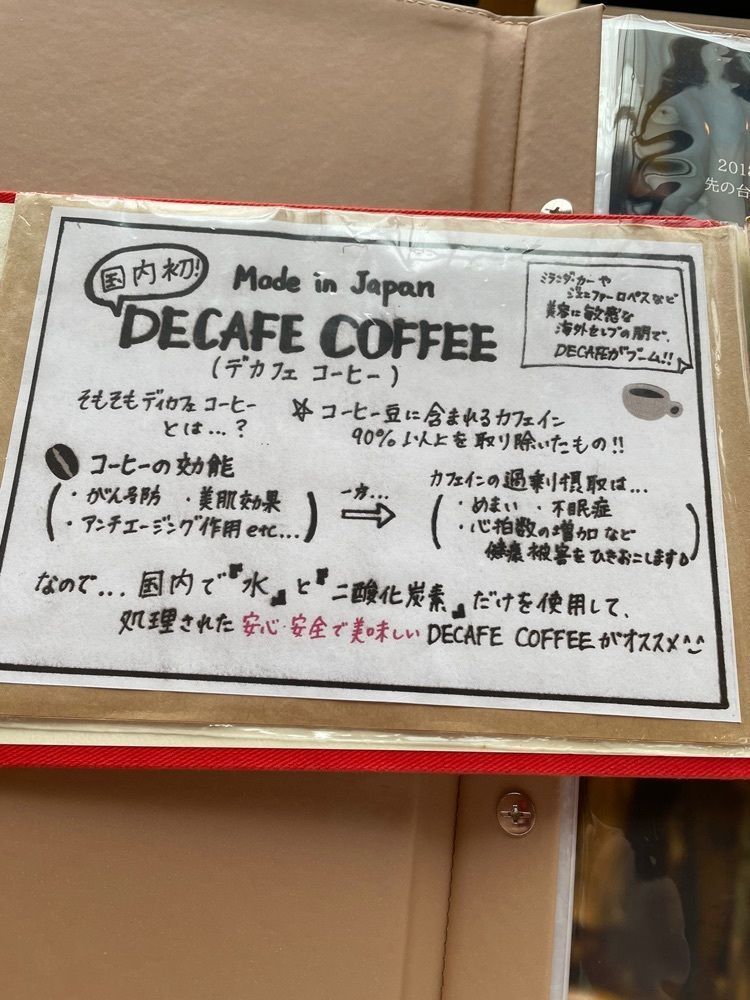 2018
先の台
国内初!
Made in Japan
DECAFE COFFEE
(デカフェ コーヒー)
ミランダ・カーや
ジェニファーロペスなど
美容に敏感な
海外セレブの間で、
DECAFEがブーム!!
そもそもディカフェコーヒー
とは...?
☆ コーヒー豆に含まれるカフェイン
90%以上を取り除いたもの!!
コーヒーの効能
・がん予防 ・美肌効果
・アンチエージング作用etc...
一方...
⇒
カフェインの過剰摂取は...
・めまい ・不眠症
・心拍数の増加など
健康被害をひきおこします。
なので... 国内で『水』と『二酸化炭素』だけを使用して、
処理された 安心・安全で美味しい DECAFE COFFEEがオススメ^^